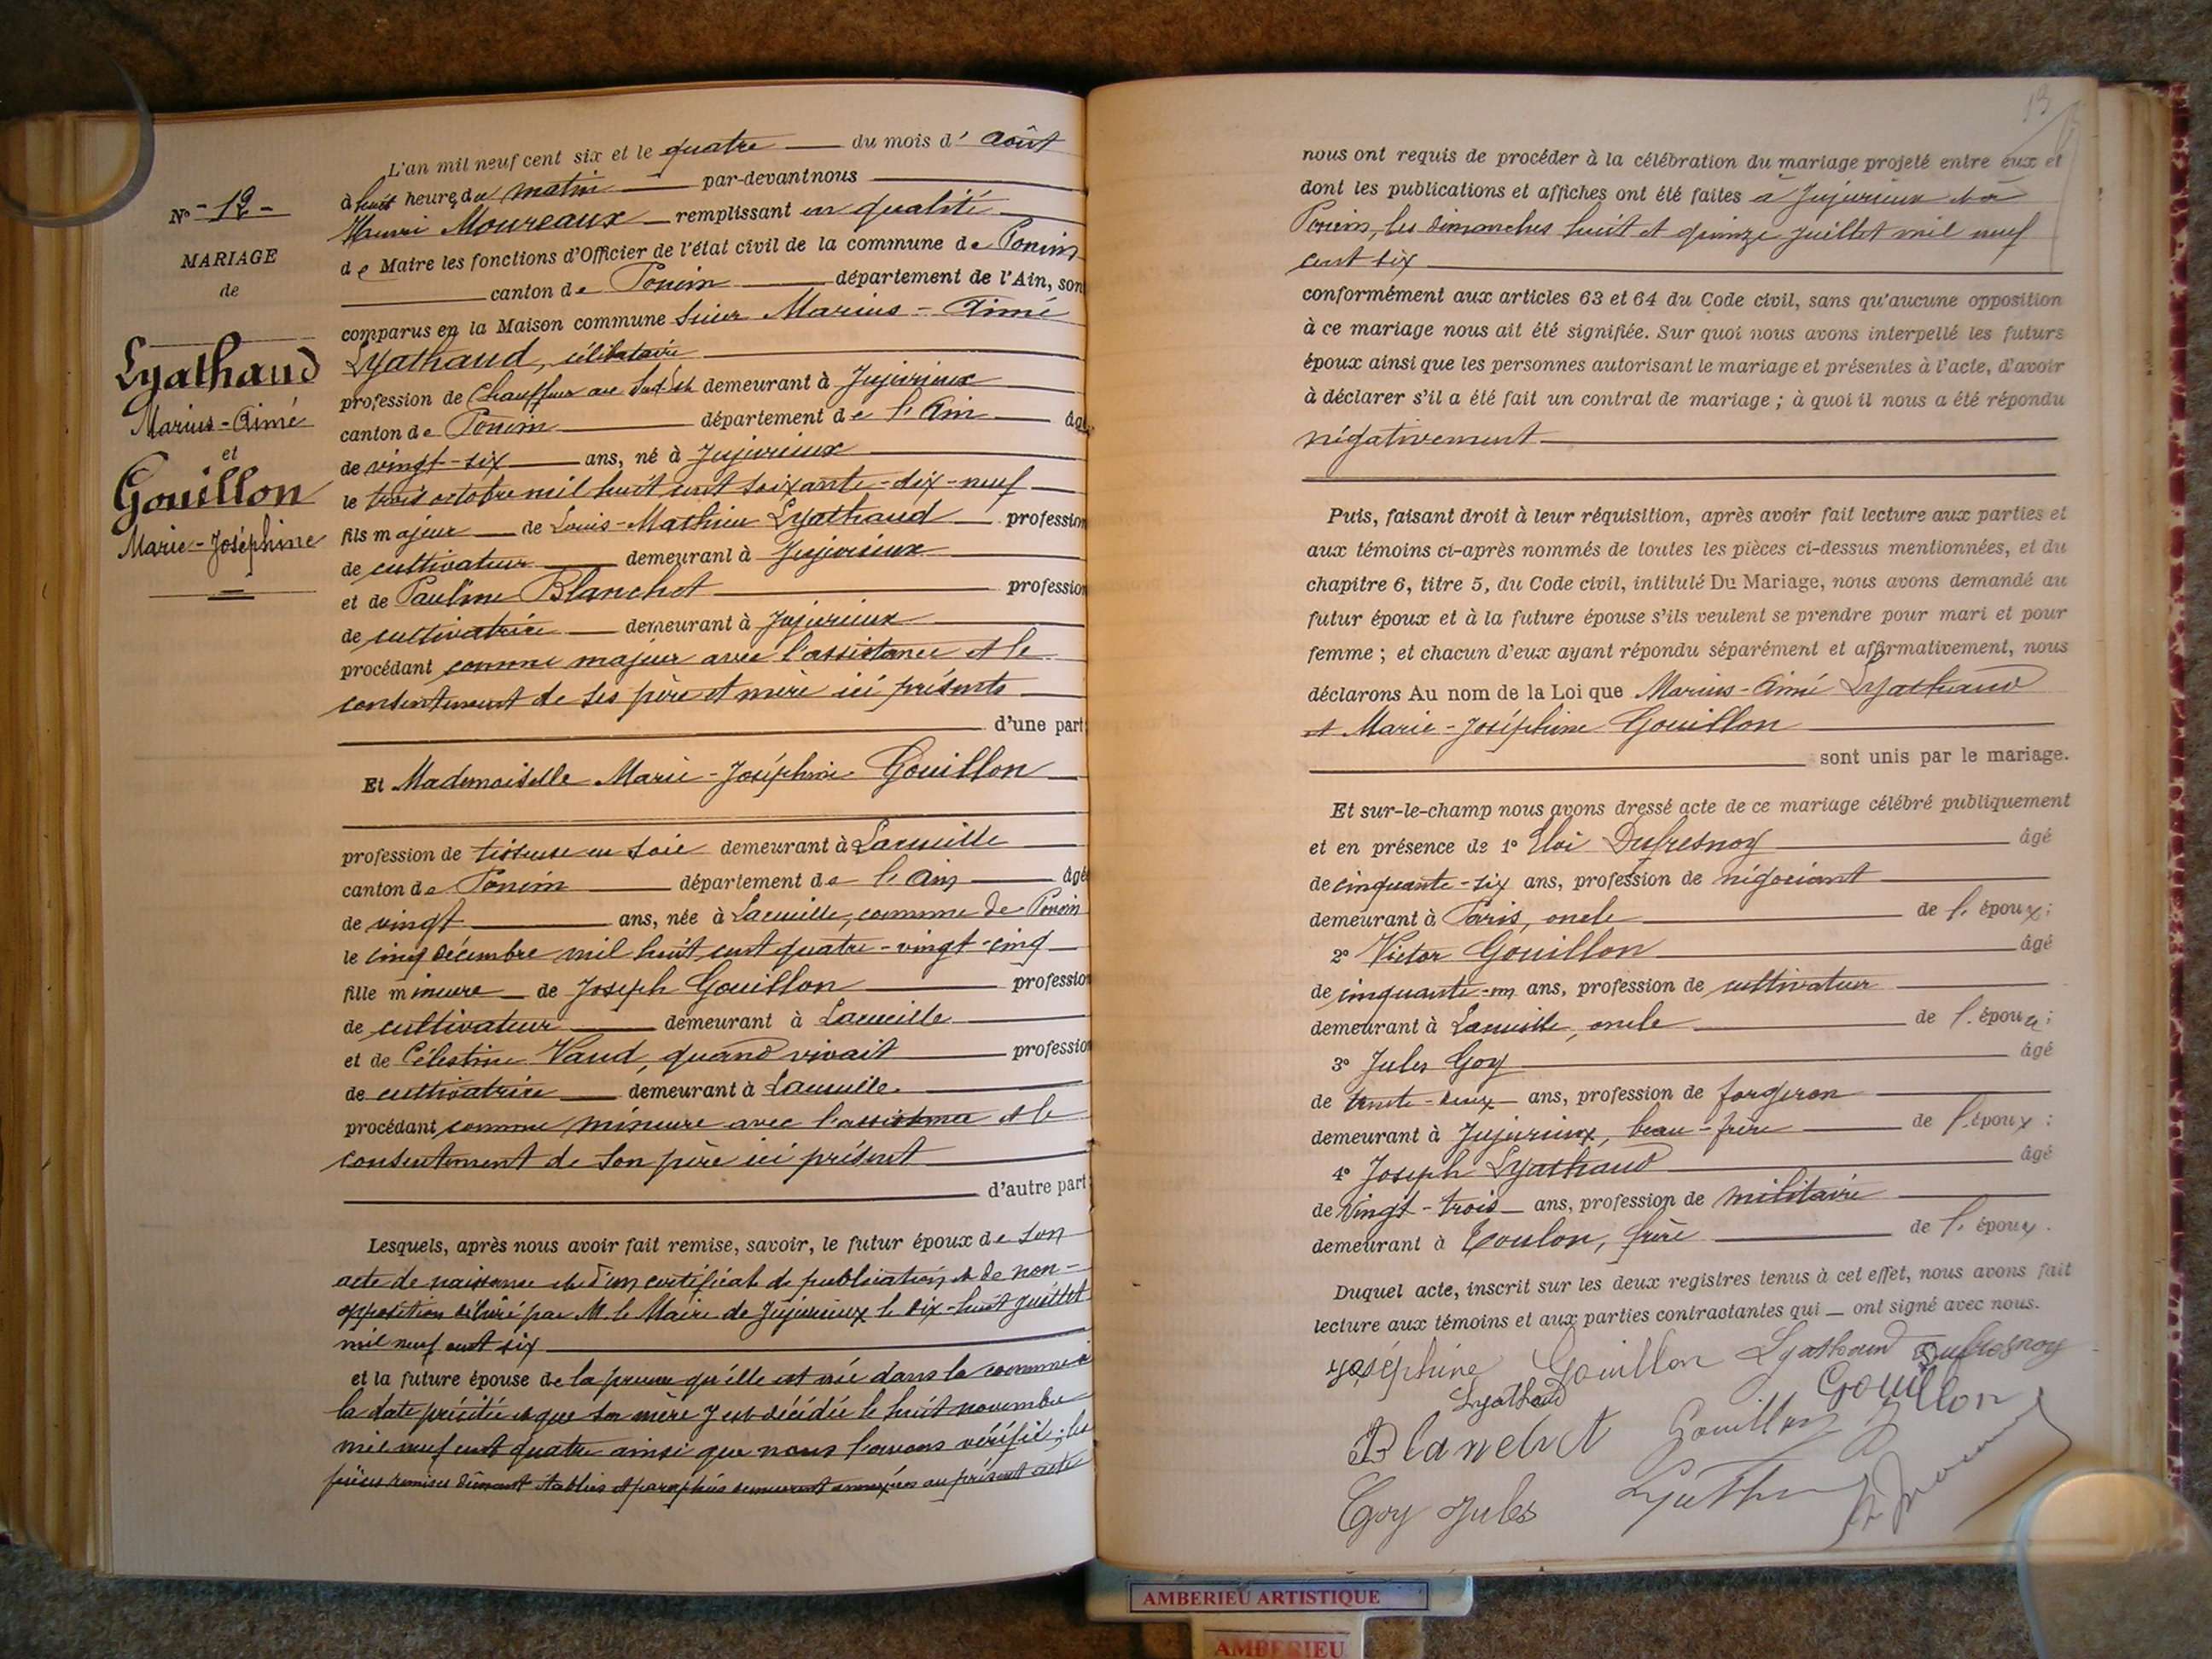 L'an mil neuf cent six et le quatre du mois d' Août
à huit heures du matin par-devant nous
Henri Moureaux remplissant en qualité
de Maire les fonctions d'Officier de l'état civil de la commune de Poncin
canton de Poncin département de l'Ain, son
comparus en la Maison commune Sieur Marius-Aimé
Lyathaud, célibataire
profession de Chauffeur au Sud Est demeurant à Jujurieux
canton de Poncin département de l'Ain âgé
de vingt-six ans, né à Jujurieux
le trois octobre mil huit cent soixante-dix-neuf
fils majeur de Louis-Mathieu Lyathaud profession
de cultivateur demeurant à Jujurieux
et de Pauline Blanchot profession
de cultivatrice demeurant à Jujurieux
procédant comme majeur avec l'assistance et le
consentement de ses père et mère ici présents
d'une part
Et Mademoiselle Marie-Joséphine Gouillon
profession de tisseuse en soie demeurant à Lacueille
canton de Poncin département de l'Ain âgé
de vingt ans, née à Lacueille, commune de Poncin
le cinq décembre mil huit cent quatre-vingt-cinq
fille mineure de Joseph Gouillon profession
de cultivateur demeurant à Lacueille
et de Célestine Vaud, quand vivait profession
de cultivatrice demeurant à Lacueille.
procédant comme mineure avec l'assistance et le
consentement de son père ici présent
d'autre part
Lesquels, après nous avoir fait remise, savoir, le futur époux de son
acte de naissance et d'un certificat de publication et de non-
opposition délivré par M. le Maire de Jujurieux le dix-huit juillet
mil neuf cent six
et la future épouse de la preuve qu'elle est née dans la commune à
la date précitée et que sa mère y est décédée le huit novembre
mil neuf cent quatre ainsi que nous l'avons vérifié; les
pièces remises dûment établies et paraphées demeurent annexées au présent acte
N° -12-
MARIAGE
de
Lyathaud
Marius-Aimé
et
Gouillon
Marie-Joséphine
13
nous ont requis de procéder à la célébration du mariage projeté entre eux et
dont les publications et affiches ont été faites à Jujurieux et à
Poncin, les dimanches huit et quinze juillet mil neuf
cent six
conformément aux articles 63 et 64 du Code civil, sans qu'aucune opposition
à ce mariage nous ait été signifiée. Sur quoi nous avons interpellé les futurs
époux ainsi que les personnes autorisant le mariage et présentes à l'acte, d'avoir
à déclarer s'il a été fait un contrat de mariage ; à quoi il nous a été répondu
négativement
Puis, faisant droit à leur réquisition, après avoir fait lecture aux parties et
aux témoins ci-après nommés de toutes les pièces ci-dessus mentionnées, et du
chapitre 6, titre 5, du Code civil, intitulé Du Mariage, nous avons demandé au
futur époux et à la future épouse s'ils veulent se prendre pour mari et pour
femme ; et chacun d'eux ayant répondu séparément et affirmativement, nous
déclarons Au nom de la Loi que Marius-Aimé Lyathaud
et Marie-Joséphine Gouillon
sont unis par le mariage.
Et sur-le-champ nous avons dressé acte de ce mariage célébré publiquement
et en présence de 1° Eloi Dufresnoy âgé
de cinquante-six ans, profession de négociant
demeurant à Paris, oncle de l'époux;
2° Victor Gouillon âgé
de cinquante-un ans, profession de cultivateur
demeurant à Lacueille, oncle de l'épouse;
3° Jules Goy âgé
de trente-deux ans, profession de forgeron
demeurant à Jujurieux, beau-frère de l'époux ;
4° Joseph Lyathaud âgé
de vingt-trois ans, profession de militaire
demeurant à Toulon, frère de l'époux.
Duquel acte, inscrit sur les deux registres tenus à cet effet, nous avons fait
lecture aux témoins et aux parties contractantes qui — ont signé avec nous.
Joséphine Gouillon Lyathaud Dufresnoy
Lyathaud Gouillon
Blanchot Gouillon
Goy Jules
AMBERIEU ARTISTIQUE
AMBERIEU